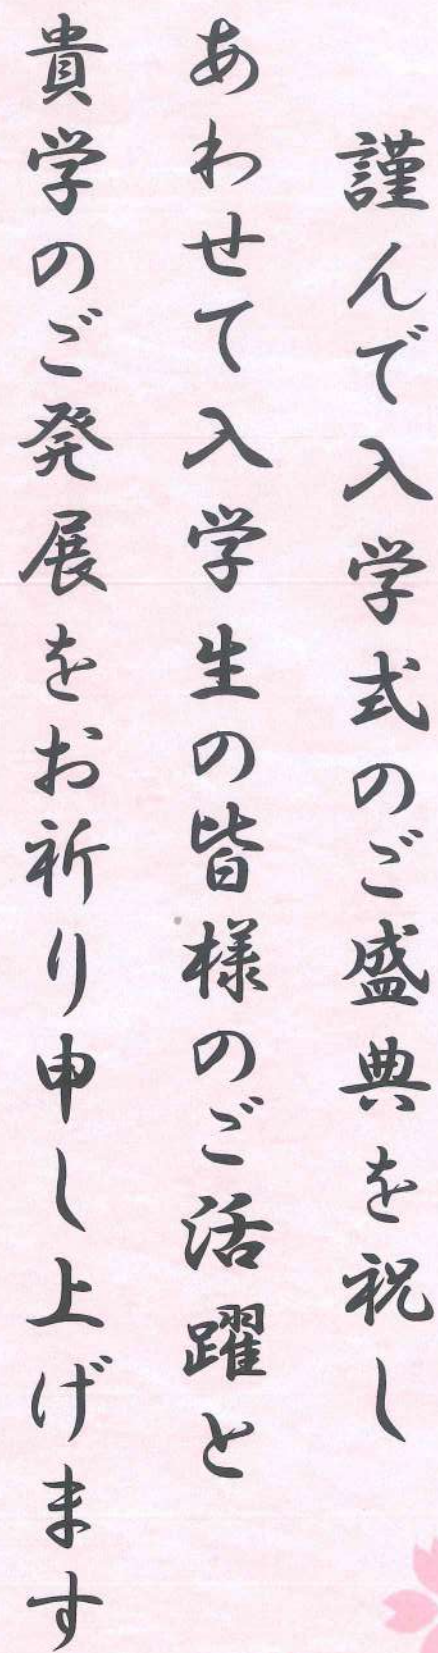 謹んで入学式のご盛典を祝し
あわせて入学生の皆様のご活躍と
貴学のご発展をお祈り申し上げます